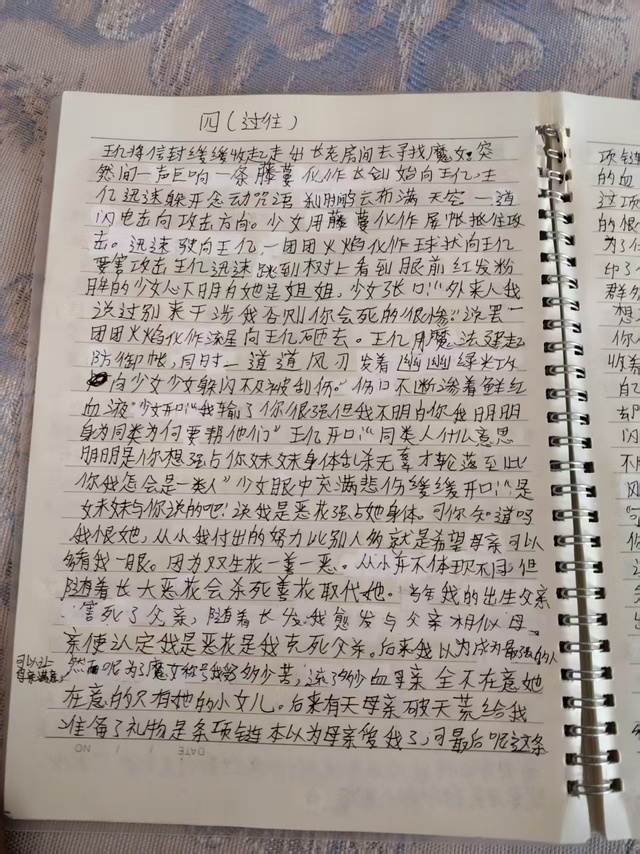 四(过往)
王亿将信封缓缓收起走出长老房间去寻找魔女。突
然间一声巨响一条藤蔓化作长剑始向王亿王
亿迅速躲开念动咒语 刹那乌云布满天空 一道
闪电击向攻击方向。少女用藤蔓化作屏帐抵住攻
击。迅速驶向王亿,一团团火焰化作球状向王亿
要害攻击王亿迅速跳到树上看到眼前红发粉
眸的少女心不明白她是姐姐,少女张口:“外来人我
说过别来干涉我否则你会死的很惨”说罢一
团团火焰化作流星向王亿砸去。王亿用魔法建起
防御帐,同时一道道风刃 发着幽幽绿光攻
向少女少女躲闪不及被刮伤。伤口不断渗着鲜红
血液“少女开口:“我输了你很强但我不明白你我明明
身为同类为何要帮他们”王亿开口:“同类人什么意思
明明是你想强占你妹妹身体乱杀无辜才轮落至此
你我怎会是一类人”少女眼中充满悲伤缓缓开口:“是
妹妹与你说的吧!说我是恶花强占她身体。可你知道吗
我恨她,从小我付出的努力比别人多就是希望母亲可以
多看我一眼。因为双生花一善一恶。从小并不体现不同但
随着长大恶花会杀死善花取代她。当年我的出生父亲
害死了父亲,随着长发我愈发与父亲相似母
亲便认定我是恶花是我克死父亲。后来我以为成为最强的人
可以让
母亲满意
然而呢为了魔女称号我吃多少苦,流了多少血母亲全不在意她
在意的只有她的小女儿。后来有天母亲破天荒给我
准备了礼物是条项链本以为母亲爱我了,可最后呢这条
DATE / / NO
项链
的血
过项
的很
为了
印了
群外
想
你
收着
自己
去
闪
不用
风